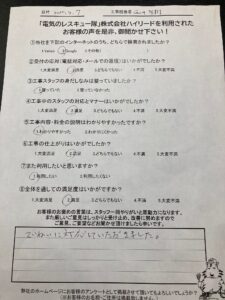 「電気のレスキュー隊」株式会社ハイリードを利用された
お客様の声を是非、御聞かせ下さい!
①当社を下記のインターネットのうち、どちらで検索されましたか?
1.Yahoo 2.Google 3.その他(
②受付の応対(電話対応・メールでの返信)はいかがでしたか?
1.大変満足 2.満足 3.どちらでもない 4.不満 5.大変不満
③工事スタッフの身だしなみは整っていましたか?
1.整っていた 2.整っていなかった
④工事中のスタッフの対応とマナーはいかがでしたか?
1.大変満足 2.満足 3.どちらでもない 4.不満 5.大変不満
⑤工事内容・料金の説明はわかりやすかったですか?
1.わかりやすかった 2.わかりにくかった
⑥工事の仕上がりはいかがでしたか?
1.大変満足 2.満足 3.どちらでもない 4.不満 5.大変不満
⑦また利用したいと思いますか?
1.利用したい 2.利用したくない
⑧全体を通しての満足度はいかがですか?
1.大変満足 2.満足 3.どちらでもない 4.不満 5.大変不満
お客様のお褒めの言葉は、スタッフ一同やりがいと原動力になります。
また厳しいご意見はしっかりと受止め、改善に努めますので
ご意見、ご要望などお聞かせ頂けましたら幸いです。
ていねいに
いただきました。
お客様のアンケートとして掲載させて頂いてもよろしいでしょうか?